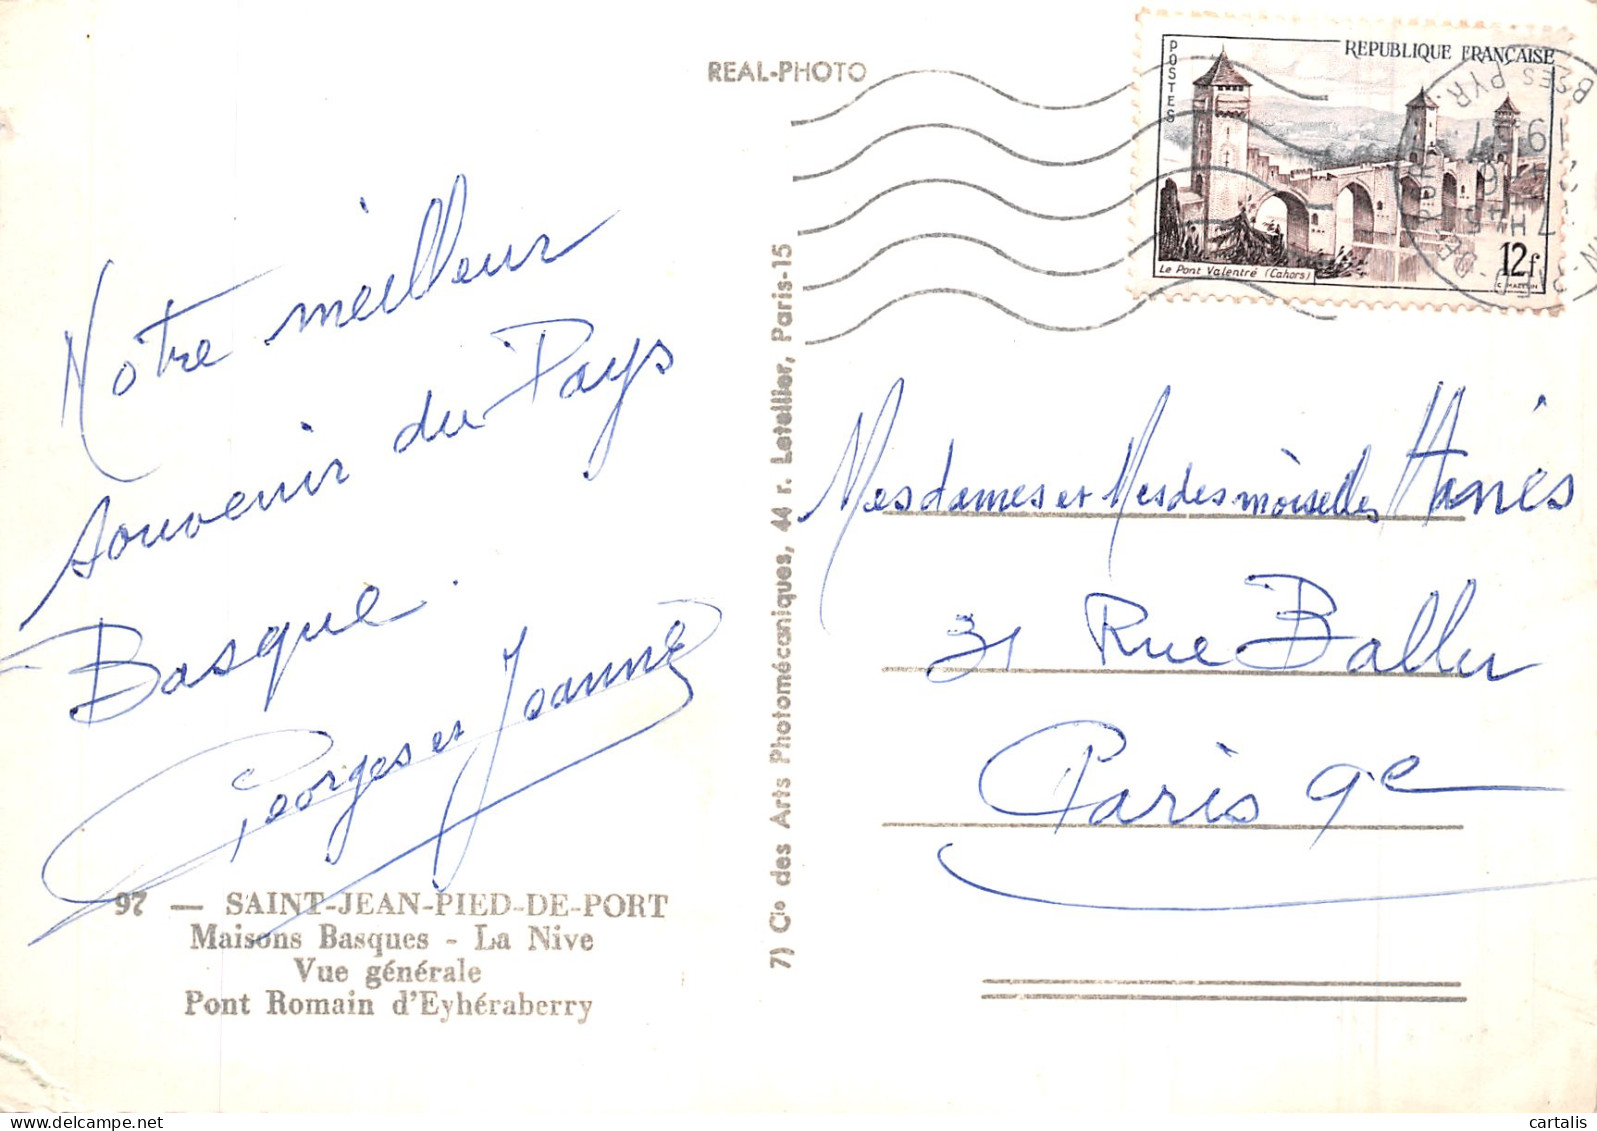 REAL-PHOTO
POSTES
REPUBLIQUE FRANÇAISE
Le Pont Valentré (Cahors)
12f
Notre meilleur
souvenir du Pays
Basque.
Georges et Jeanne
97 — SAINT-JEAN-PIED-DE-PORT
Maisons Basques - La Nive
Vue générale
Pont Romain d'Eyhéraberry
7) Cie des Arts Photomécaniques, 44 r. Letellier, Paris-15
Mesdames et Mesdesmoiselles
31 Rue Ballu
Paris 9e
cartalis